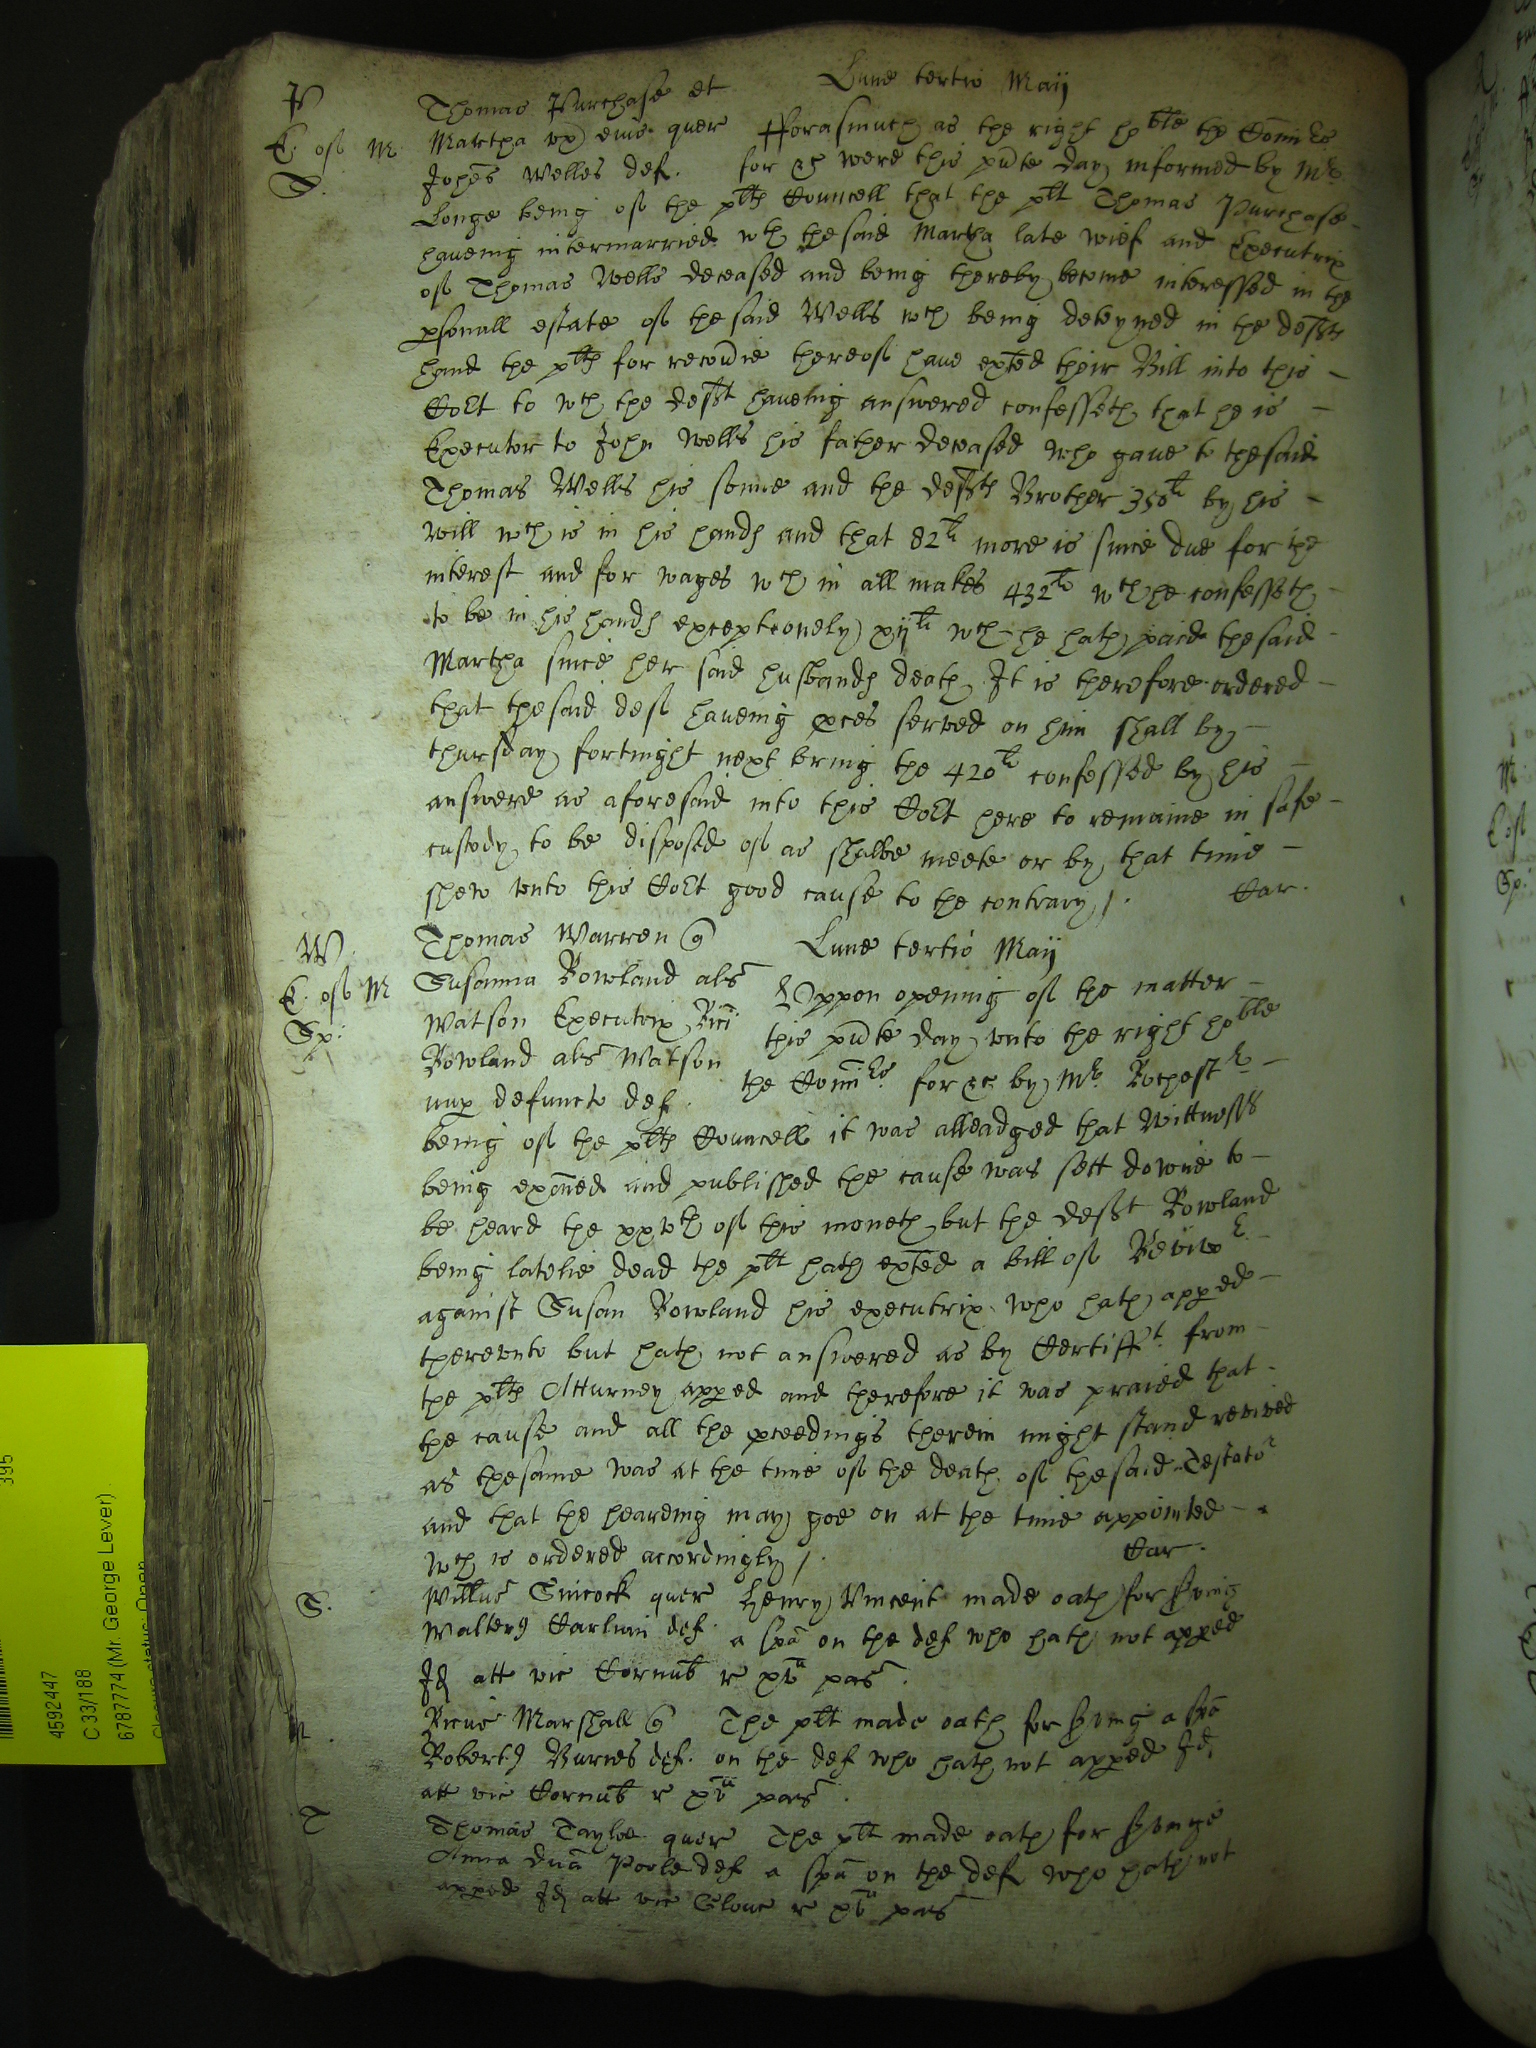 P
Thomas Purchase et
Lune tertio Maij
E of M
Martha vx eius quer fforasmuch as the right ho:ble the Comrs
S.
Johes Welles def. for &c were this pnte day informed by Mr
Longe being of the plts Councell that the plt Thomas Purchase
haveing intermarried wth the said Martha late wief and Executrix
of Thomas Wells deceased and being thereby become interessed in the
psonall estate of the said Wells wch being deteyned in the defts
hand the plts for recovie thereof have exted their Bill into this
Cort to wch the deft haveing answered confesseth that he is
Executor to John Wells his father deceased who gave to the said
Thomas Wells his sonne and the defts Brother 350li by his
will wch is in his hands and that 82li more is since due for the
interest and for wages wch in all makes 432li wch he confesseth
to be in his hands except onely xijli wch he hath paid the said
Martha since her said husbands death It is therefore ordered
that the said def haveing pces served on him shall by
thursday fortnight next bring the 420li confessed by his
answere as aforesaid into this Cort here to remaine in safe
custody to be disposed of as shalbe meete or by that time
shew vnto this Cort good cause to the contrary /.
Car.
W.
Thomas Warren q
Lune tertio Maij
E of M
Susanna Rowland als Vppon opening of the matter
Sp:
Watson Executrix Rici this pnte day vnto the right ho:ble
Rowland als Watson the Comrs for &c by Mr Rochestr
nup defuncto def.
being of the plts Councell it was alleadged that Wittnesses
being exoned and published the cause was sett downe to
be heard the xxvth of this moneth but the deft Rowland
being latelie dead the plt hath exted a bill of Revivor
against Susan Rowland his executrix who hath apped
therevnto but hath not answered as by Certifft from
the plts Atturney apped and therefore it was praied that
the cause and all the pceedings therein might stand revived
as the same was at the time of the death of the said Testator
and that the heareing may goe on at the time appointed
wch is ordered accordingly /.
Car.
S.
Willus Sincock quer Henry Vincent made oath for sving
Walterus def. a spa on the def who hath not apped
Id att vic Cornub r xva pas
M.
Marshall q The plt made oath for sving a spa
Robertus Burnes def. on the def who hath not apped Id
att vic Cornub r xva pas
T
Thomas Tayloe quer The plt made oath for svinge
Anna dna Poole def a spa on the def who hath not
apped Id att vic Glouc r xva pas
395
4592447
C 33/188
6787774 (Mr. George Lever)
Closure status: Open